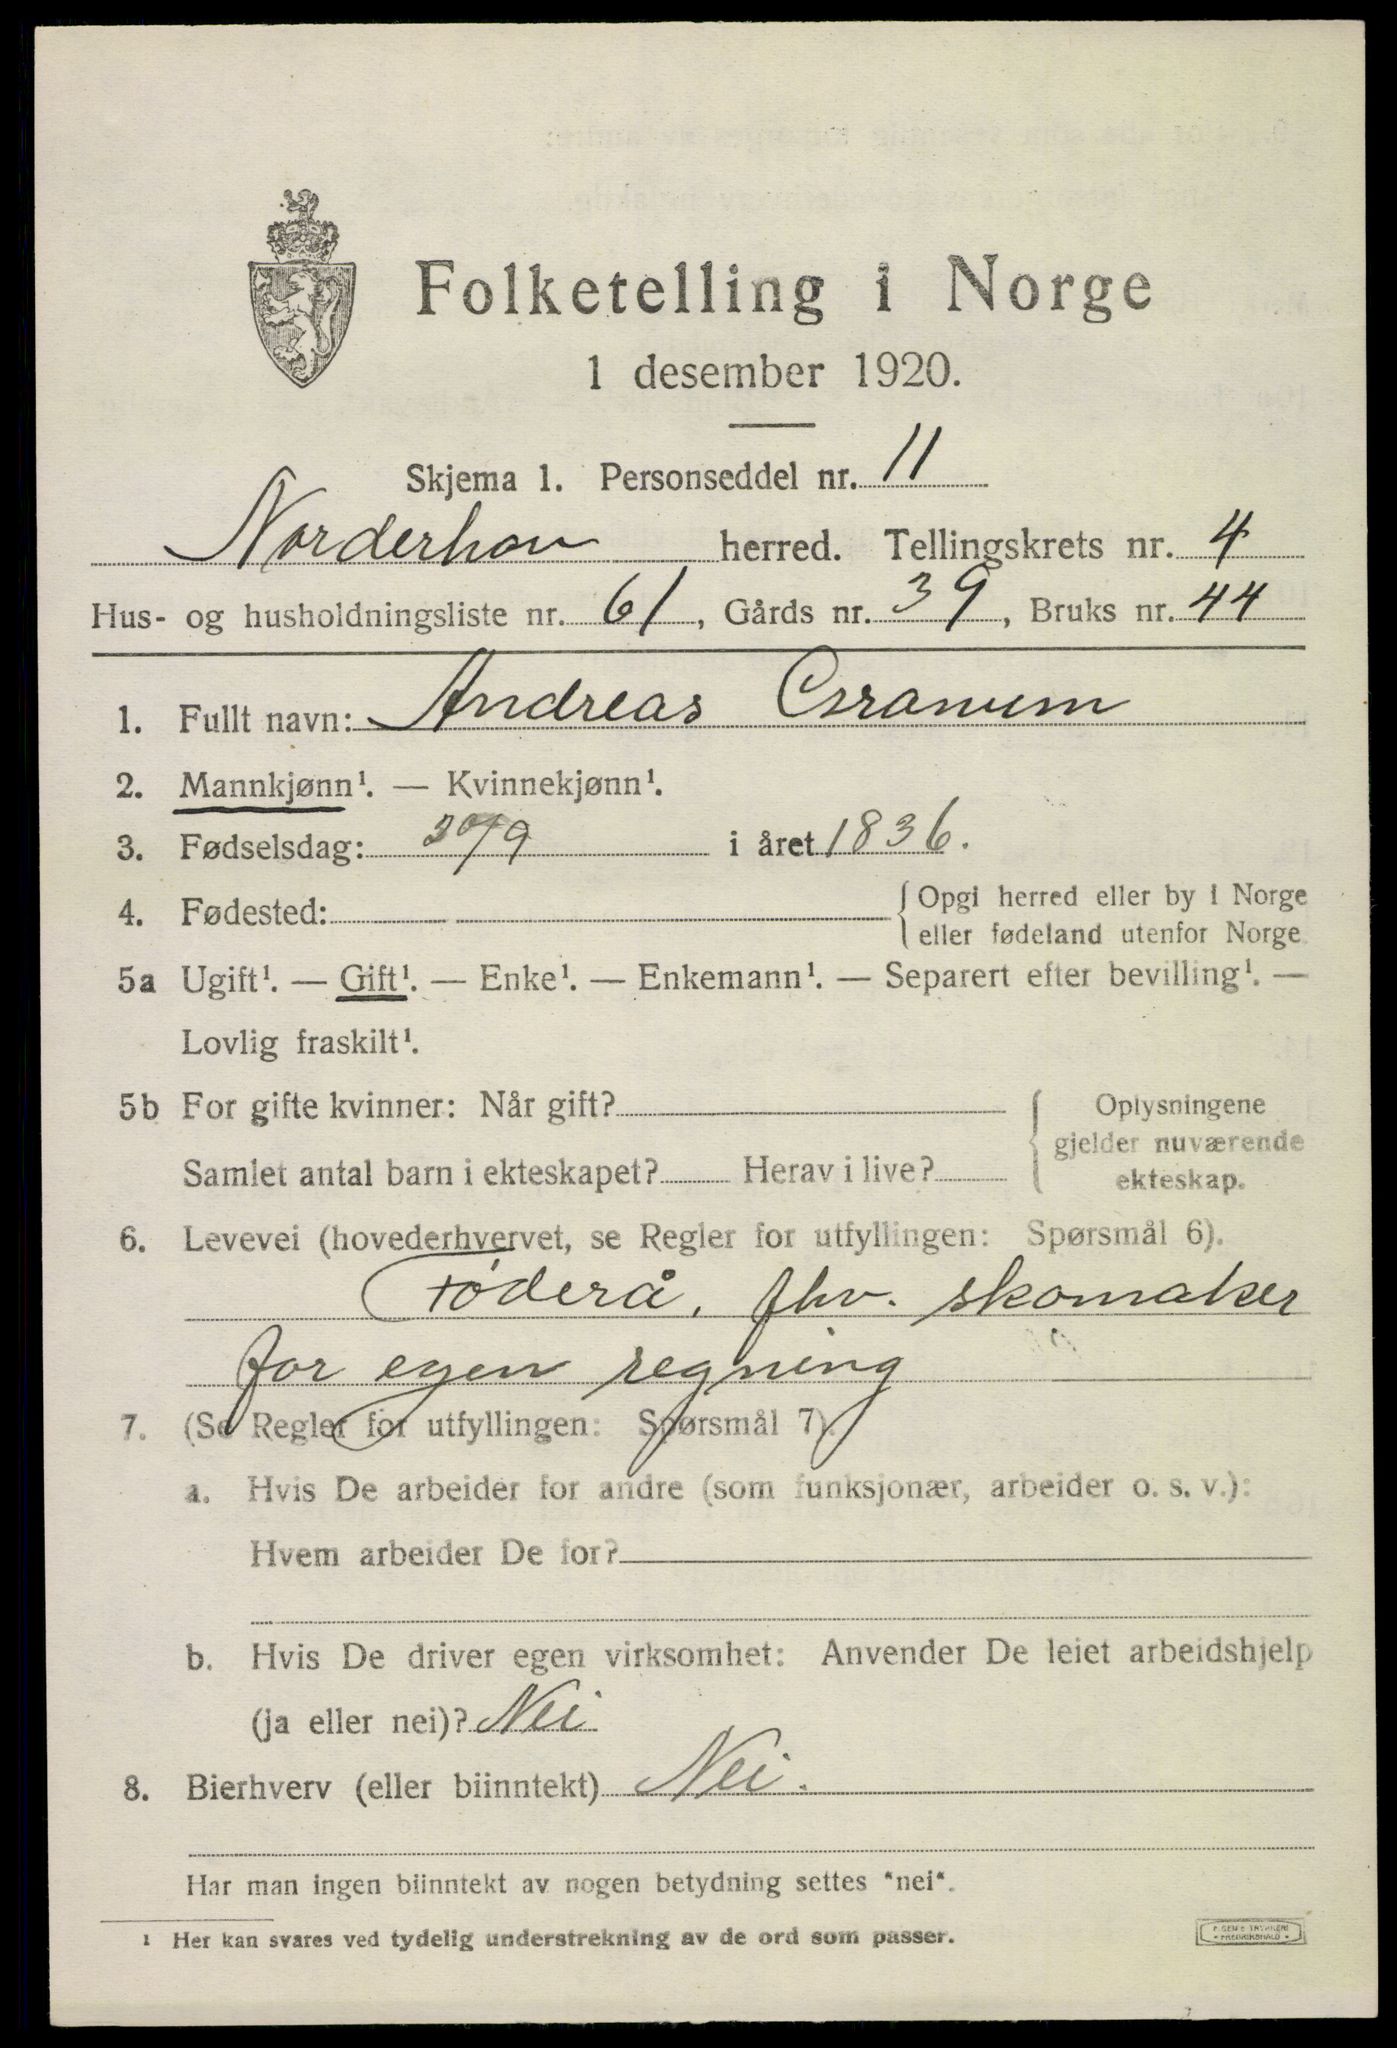 Folketelling i Norge
1 desember 1920.
Skjema 1. Personseddel nr. 11
Norderhov herred. Tellingskrets nr. 4
Hus- og husholdningsliste nr. 61, Gårds nr. 39, Bruks nr. 44
1. Fullt navn: Andreas
2. Mannkjønn¹. — Kvinnekjønn¹.
3. Fødselsdag: 30/9 i året 1836.
4. Fødested: Opgi herred eller by i Norge
eller fødeland utenfor Norge
5a Ugift¹. — Gift¹. — Enke¹. — Enkemann¹. — Separert efter bevilling¹. —
Lovlig fraskilt¹.
5b For gifte kvinner: Når gift? Oplysningene
gjelder nuværende
Samlet antal barn i ekteskapet? Herav i live? ekteskap.
6. Levevei (hovederhvervet, se Regler for utfyllingen: Spørsmål 6).
Føderå, fhv. skomaker
for egen regning
7. (Se Regler for utfyllingen: Spørsmål 7).
a. Hvis De arbeider for andre (som funksjonær, arbeider o. s. v.):
Hvem arbeider De for?
b. Hvis De driver egen virksomhet: Anvender De leiet arbeidshjelp
(ja eller nei)? Nei
8. Bierhverv (eller biinntekt) Nei.
Har man ingen biinntekt av nogen betydning settes "nei".
¹ Her kan svares ved tydelig understrekning av de ord som passer.